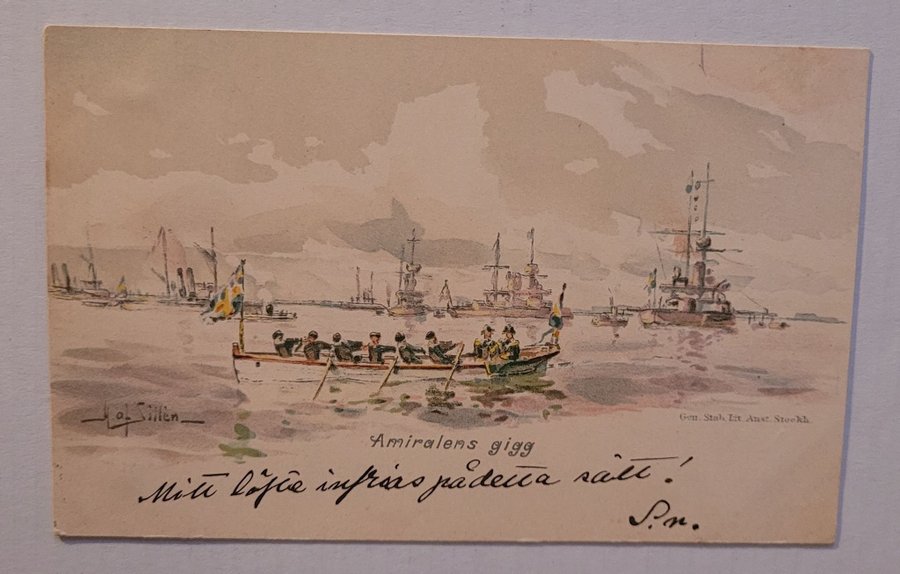 H. af Sillén
Gen. Stab. Lit. Anst. Stockh.
Amiralens gigg
Mitt löfte infrias på detta sätt!
S.n.